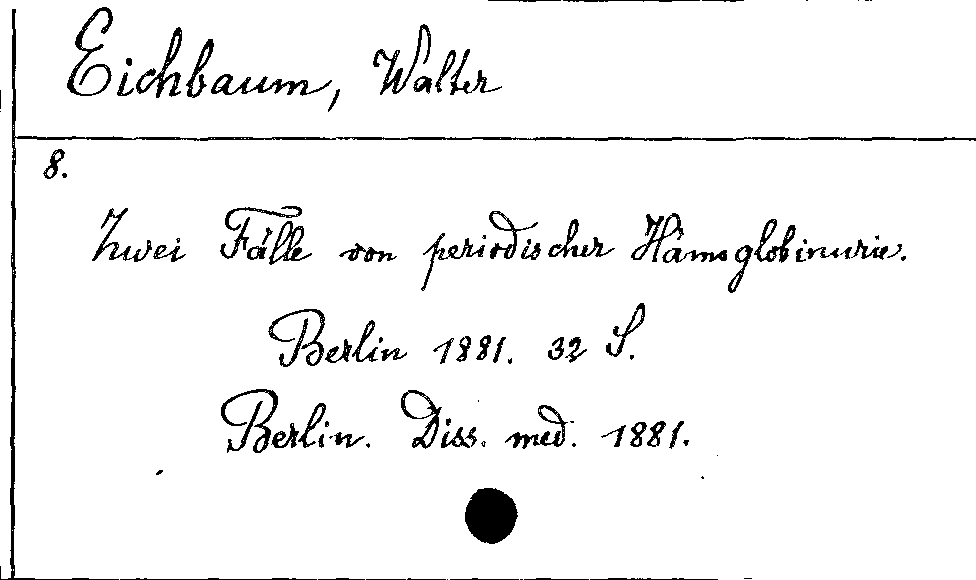 Eichbaum, Walter
8.
Zwei Fälle von periodischer Hämoglobinurie.
Berlin 1881. 32 S.
Berlin. Diss. med. 1881.